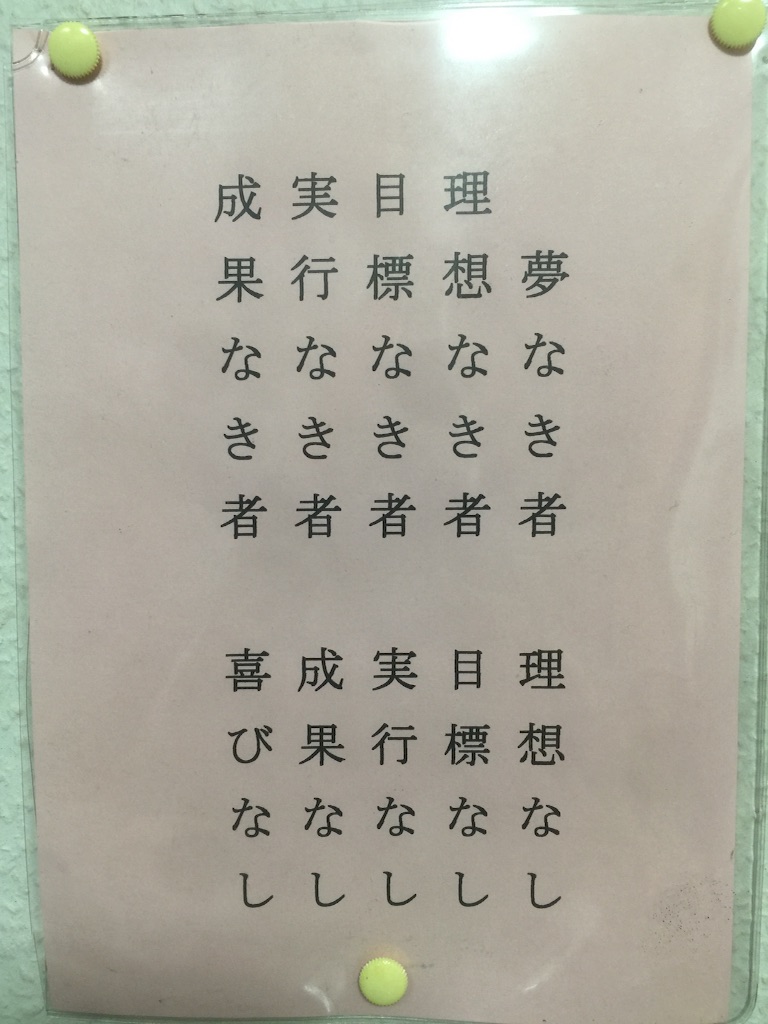 夢なき者　理想なし
理想なき者　目標なし
目標なき者　実行なし
実行なき者　成果なし
成果なき者　喜びなし